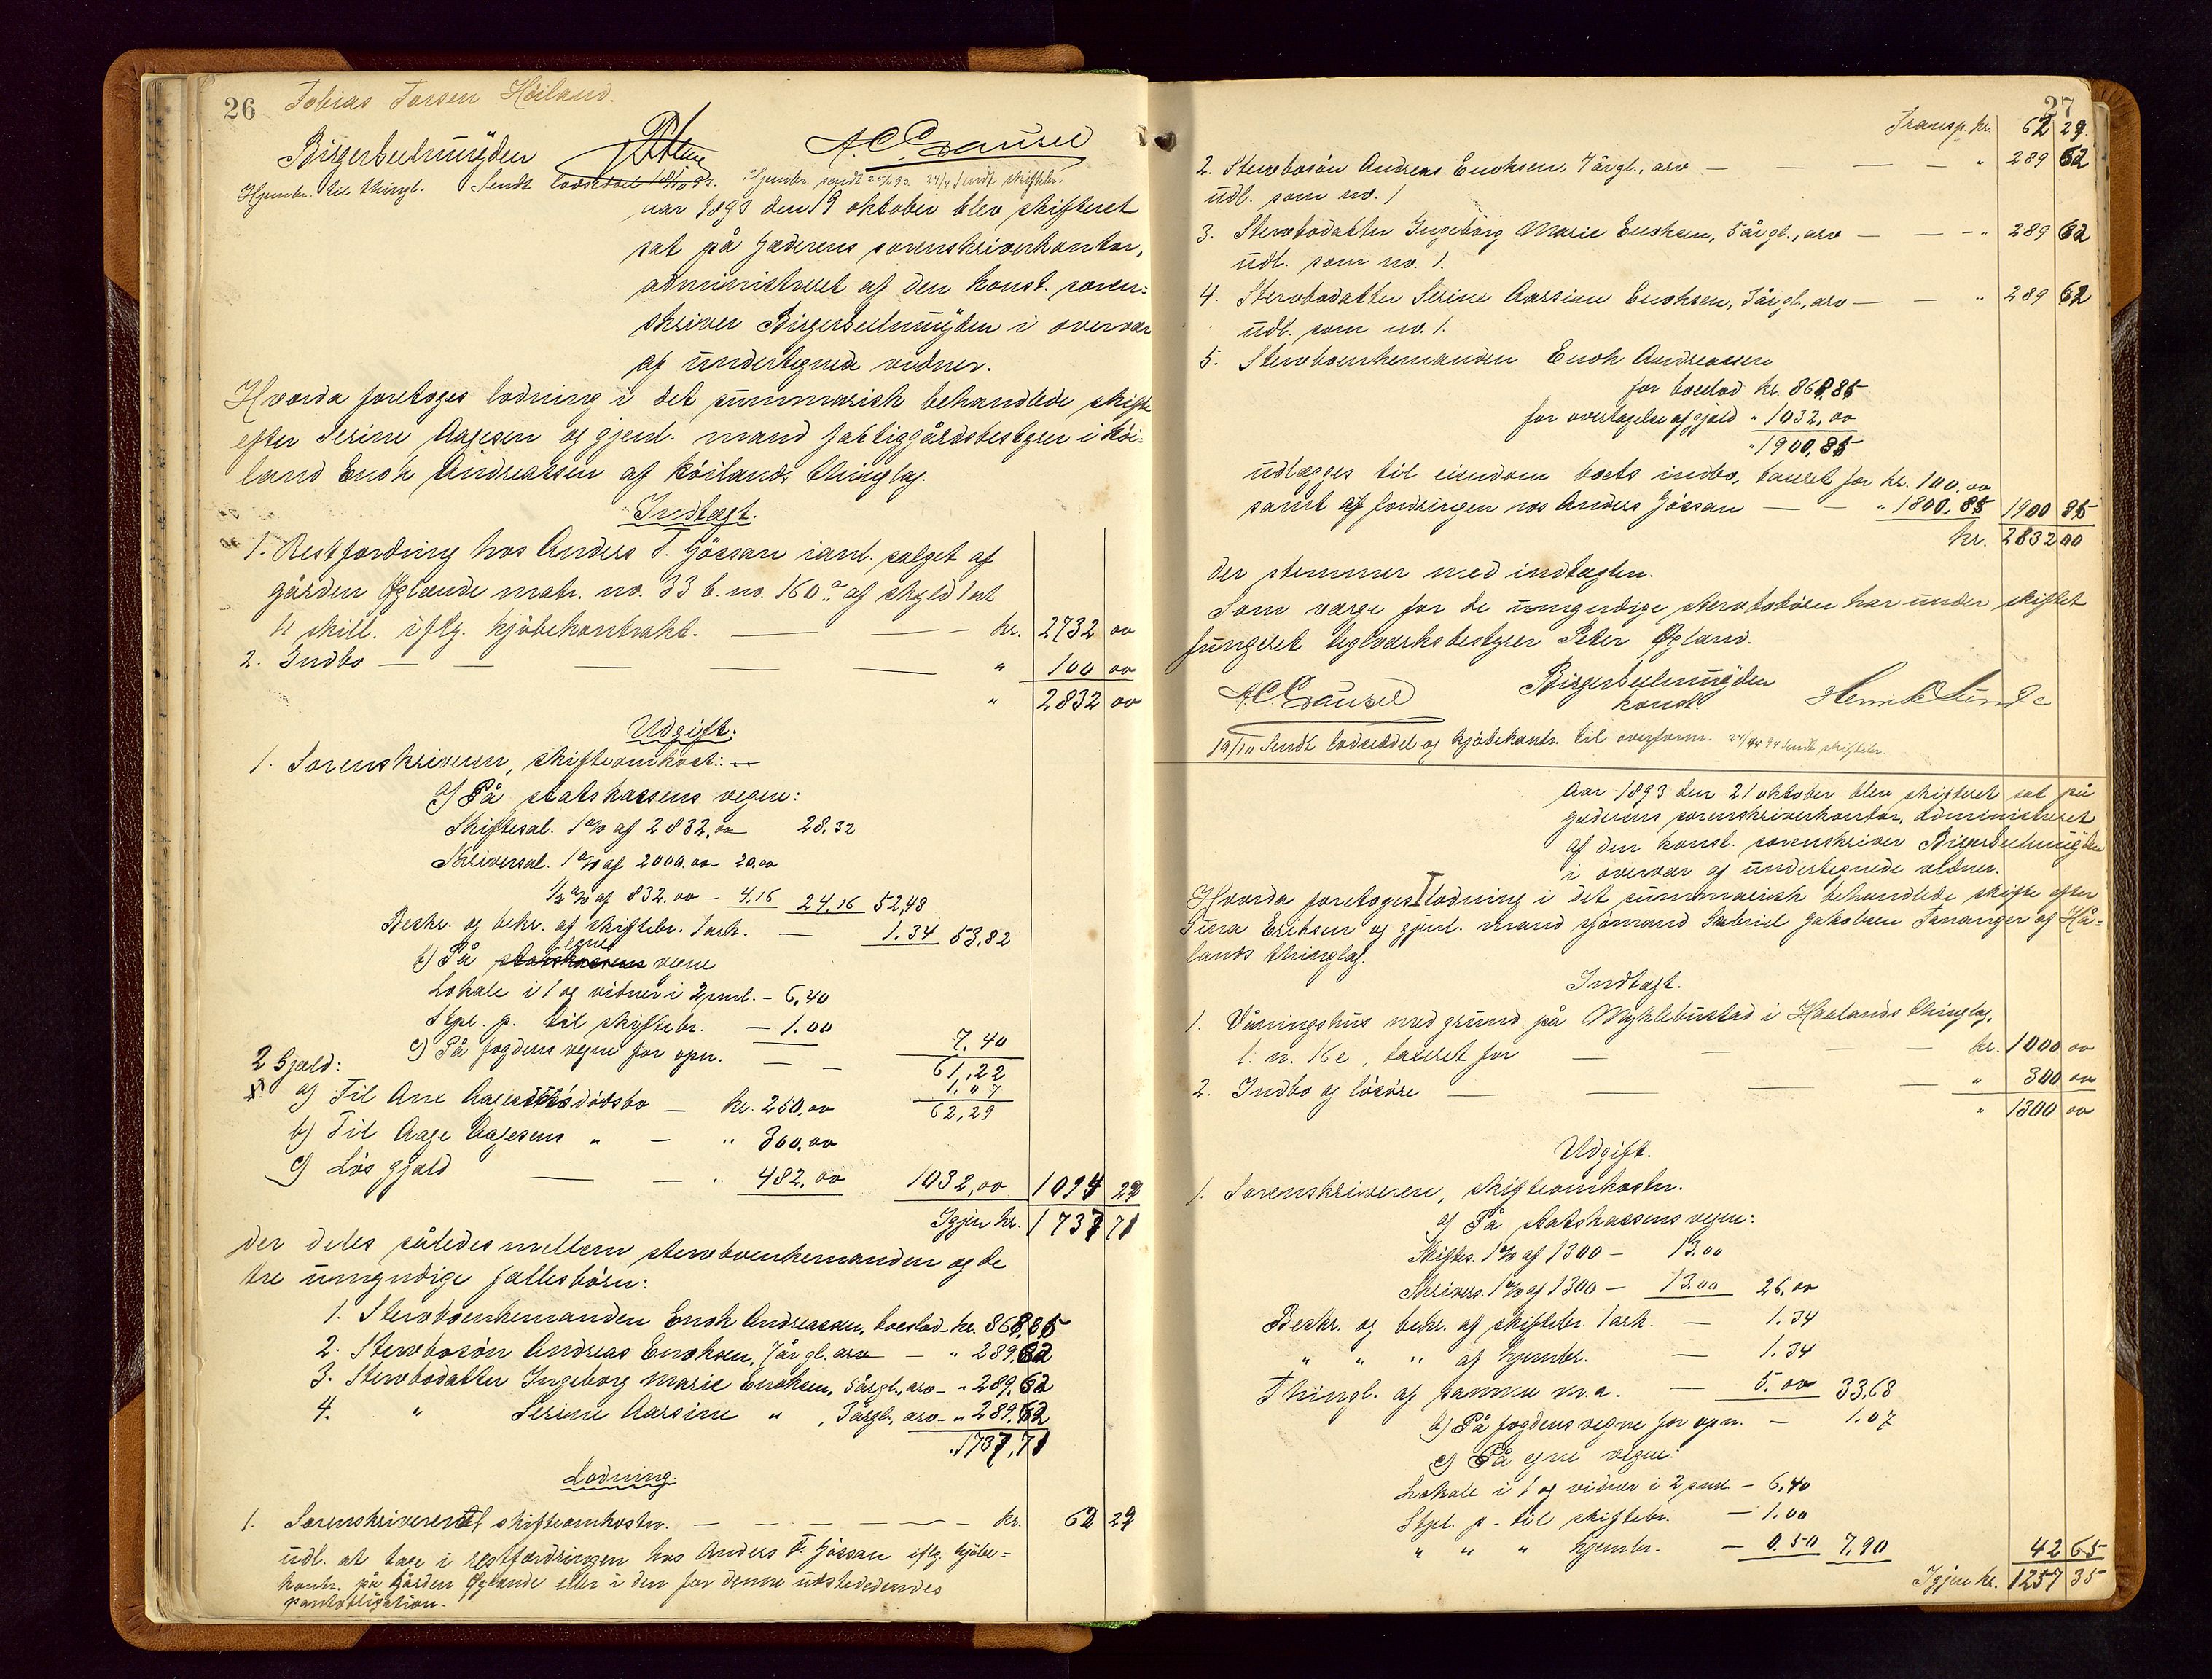 26 Tobias Torsen Höiland.
A.C. Gausel
Hjembr. til thingl. Sendt
Aar 1893 den 19 oktober blev skifteret
sat på Jæderens sorenskriverkontor,
administreret af den konst. soren-
skriver Birger Seelmuÿden i overvær
af undertegnede vidner.
Hvorda foretoges lodning i det summarisk behandlede skifte
efter Serine Aagesen og gjenl. mand fattiggårdsbestyrer i Höi-
land Enok Andreassen af Höilands thinglag.
Indtægt.
1. Restfordring hos Anders T. Jössan ianl. salget af
gården Øglænde matr. no. 33 l. no. 160a af skyld 1 ort
4 skill. iflg. kjöbekontrakt. — — kr. 2732 00
2. Indbo — — — — — " 100 00
" 2832 00
Udgift:
1. Sorenskriveren, skifteomkost.:
a) På statskassens vegne:
Skiftesal. 1% af 2832,00 28.32
Skriversal. 1% af 2000.00 20.00
1/2 % af 832.00 - 4,16 24,16 52,48
Beskr. og bekr. af skiftebr. 1 ark. — 1.34 53,82
b) På statskassens egne vegne
Lokale i 1 og vidner i 2 — 6,40
Stpl. p. til skiftebr. — 1.00
7.40
c) På fogdens vegne for opn. — —
61,22
1.07
62,29
2 Gjæld:
a) Til Ane Aagesens dödsbo — kr. 250,00
b) Til Aage Aagesens " — " 300,00
c) Lös gjæld — — " 482,00 1032,00 1094 29
Igjen kr. 1737 71
der deles således mellem stervboenkemanden og de
tre umyndige fællesbörn:
1. Stervboenkemanden Enok Andreassen, boeslod - kr. 868,85
2. Stervbosön Andreas Enoksen, 7 år gl. arv — " 289,62
3. Stervbodatter Ingeborg Marie Enoksen, 5 årgl., arv - " 289,62
4. " Serine Aarsine " , 3 årgl. arv - " 289,62
" 1737,71
Lodning.
1. Sorenskriveren skifteomkostn. — — — — kr. 62 29
udl. at tage i restfordringen hos Anders T. Jössan iflg. kjöbe-
kontr. på gården Øglænde eller i den for denne udstedendes
pantobligation.
27
Transp. kr. 62 29
2. Stervbosön Andreas Enoksen, 7 årgl., arv — — — " 289 62
udl. som no. 1
3. Stervbodatter Ingeborg Marie Enoksen, 5 år gl., arv — — " 289 62
udl. som no. 1.
4. Stervbodatter Serine Aarsine Enoksen, 3 år gl., arv — — " 289 62
udl. som no. 1.
5. Stervboenkemanden Enok Andreassen
for boeslod kr. 868,85
for overtagelse af gjæld " 1032,00
" 1900,85
udlægges til eiendom boets indbo, taxeret for kr. 100,00
samt af fordringen hos Anders Jössan — — " 1800,85 1900 85
kr. 2832 00
der stemmer med indtægten.
Som værge for de umyndige stervbobörn har under skiftet
fungeret teglværksbestyrer Peter Øgland.
A.C. Gausel Birger Seelmuÿden
konst.
19/10 Sendt lodseddel og kjöbekontr. til overform. 24/4 94 sendt skiftebr.
Aar 1893 den 21 oktober blev skifteret sat på
Jæderens sorenskriverkontor, administreret
af den konst. sorenskriver Birger Seelmuÿden
i overvær af undertegnede vidner.
Hvorda foretoges lodning i det summarisk behandlede skifte efter
Tina Eriksen og gjenl. mand sjömand Gabriel Jakobsen Tananger af Hå-
lands thinglag.
Indtægt.
1. Våningshus med grund på Myklebustad i Haalands thinglag,
l. n. 16 e, taxeret for — — — kr. 1000 00
2. Indbo og lösöre — — — — " 300 00
" 1300 00
Udgift.
1. Sorenskriveren, skifteomkostn.
a) På statskassens vegne:
Skiftes. 1% af 1300 — 13.00
Skrivers. 1% af 1300 — 13.00 26,00
Beskr. og bekr. af skiftebr. 1 ark. — 1.34
" " " af hjembr. — 1.34
Thingl. af samme m.a. — 5.00 33,68
b) På fogdens vegne for opn. — 1.07
c) På egne vegne:
Lokale i 1 og vidner i 2 — 6,40
Stpl. p. til skiftebr. — 1.00
" " " hjembr. — 0.50 7,90 42 65
Igjen kr. 1257 35